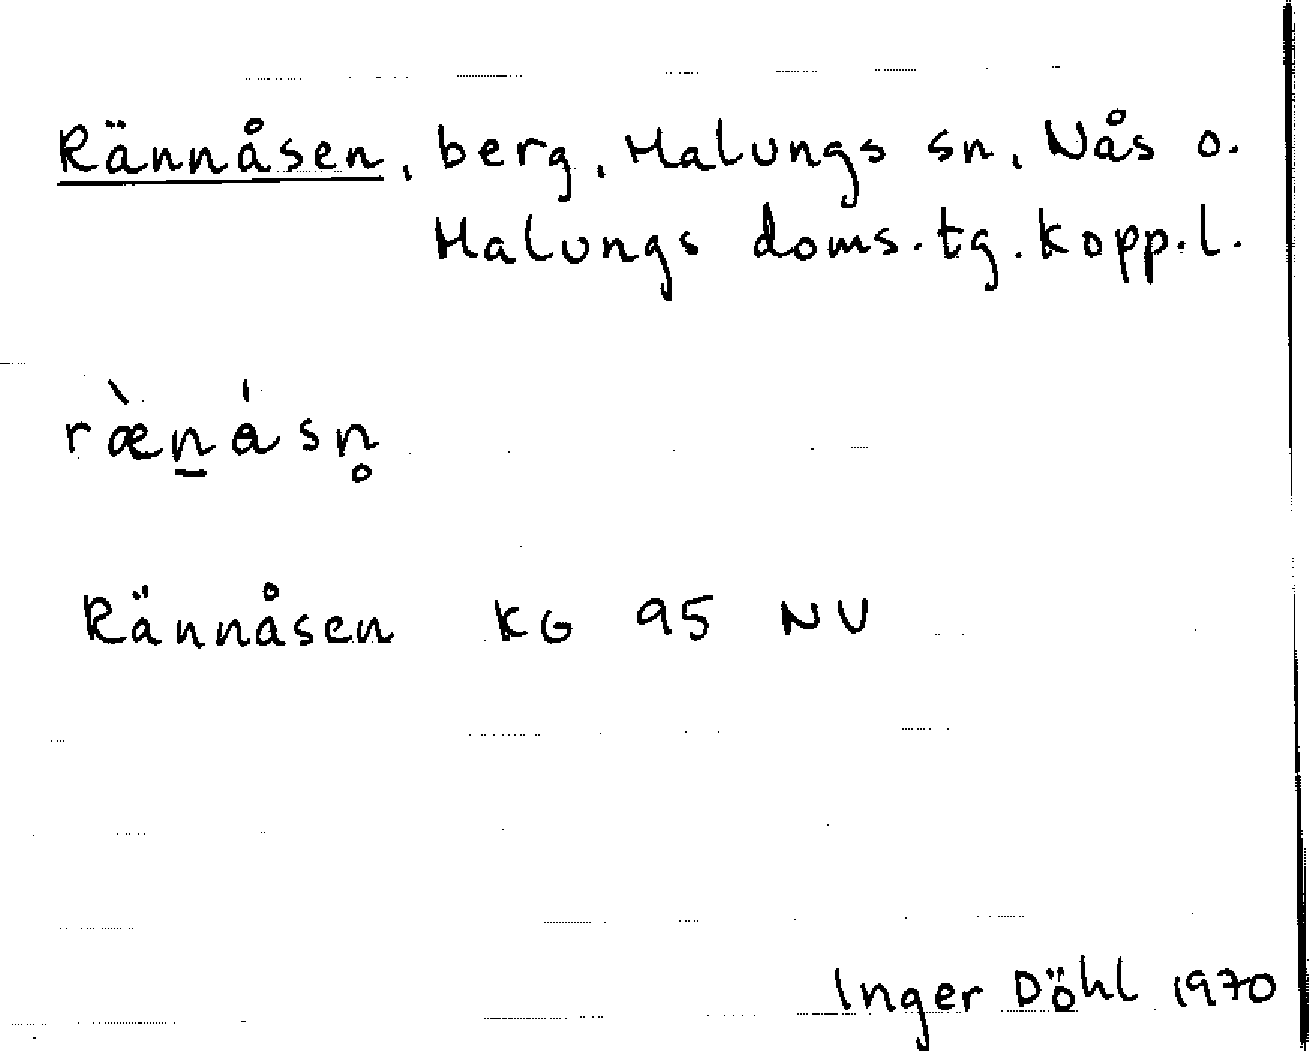 Rännåsen, berg, Malungs sn, Nås o.
Malungs doms.tg. Kopp.l.
ræ̀n̲ásn̥
Rännåsen KG 95 NV
Inger Döhl 1970